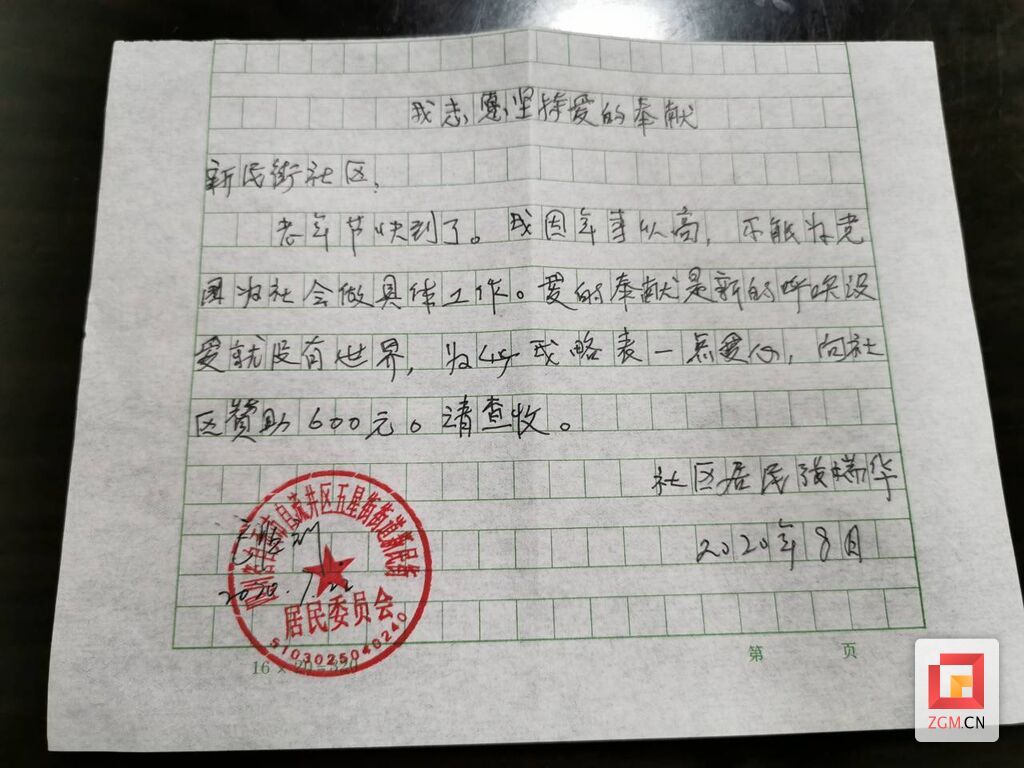 我志愿坚持爱的奉献
新民街社区:
老年节快到了。我因年事以高,不能为老
困为社会做具体工作。爱的奉献是新的呼唤没
爱就没有世界,为此我略表一点爱心,向社
区赞助600元。请查收。
社区居民
2020年8月
自贡市自流井区五星街街道新民街
居民委员会
5103025040240
16×20=320
第 页
ZGM.CN